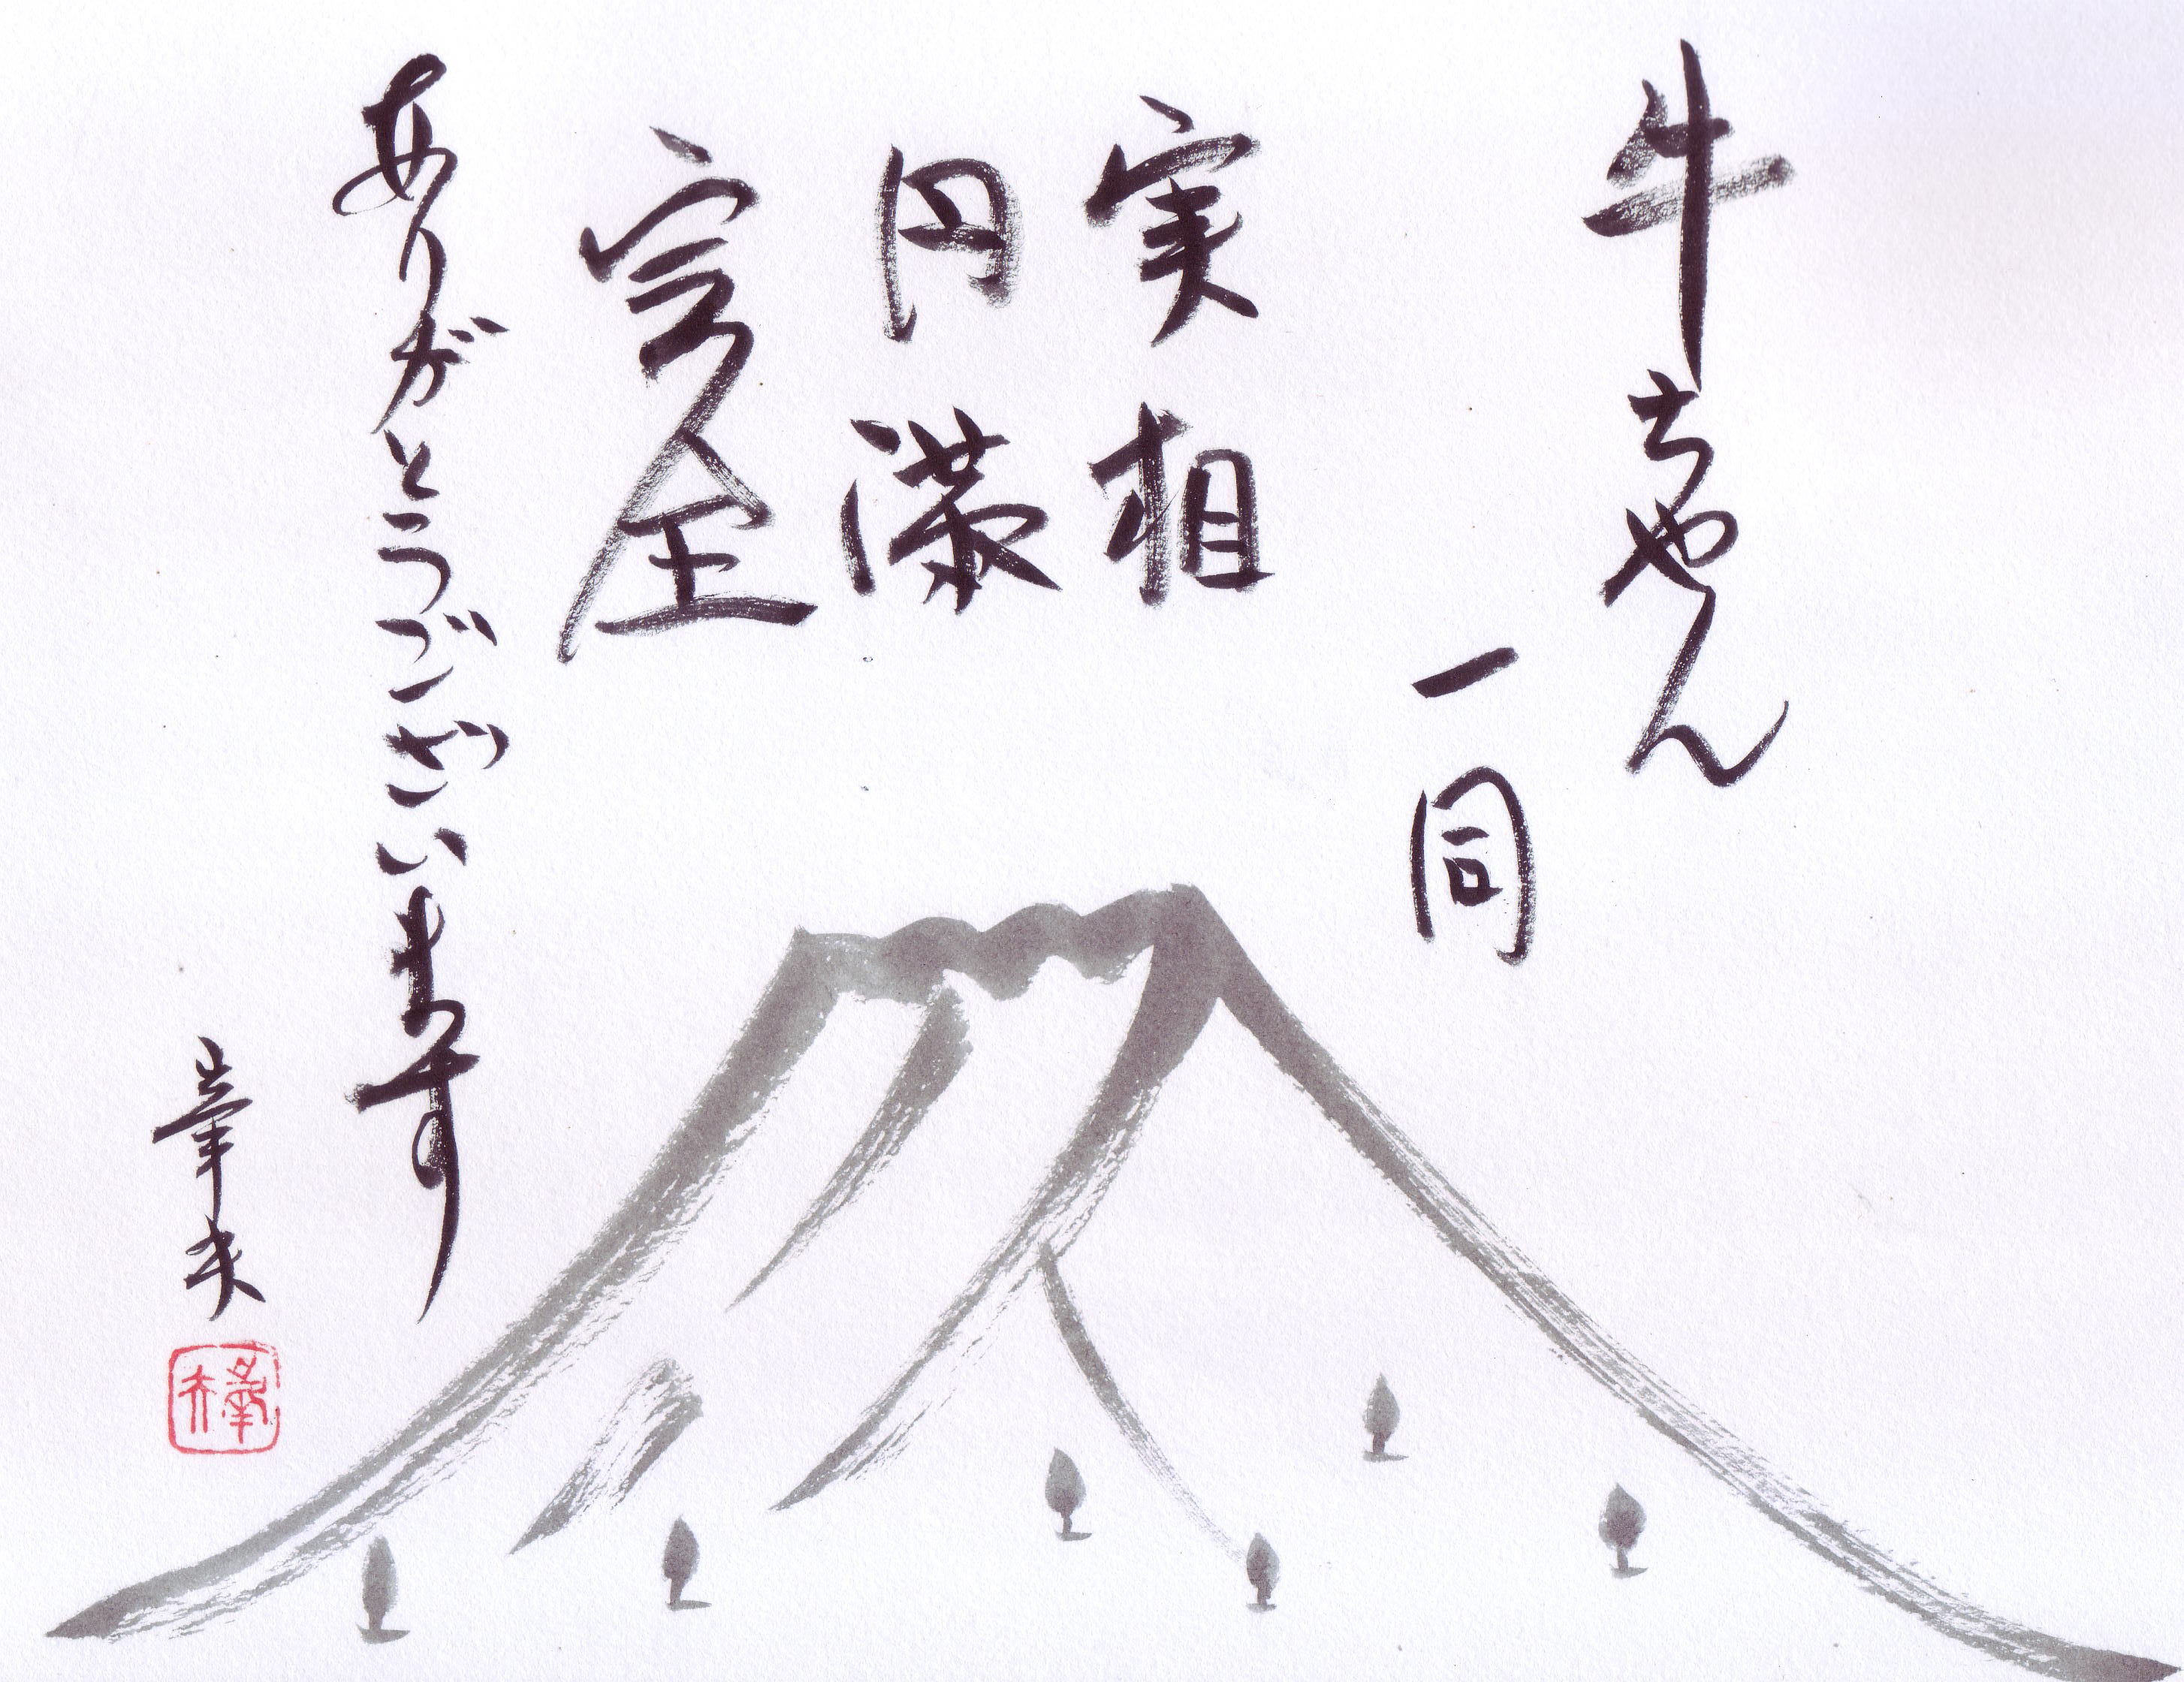 牛ちゃん
一同
実相
円満
完全
ありがとうございます